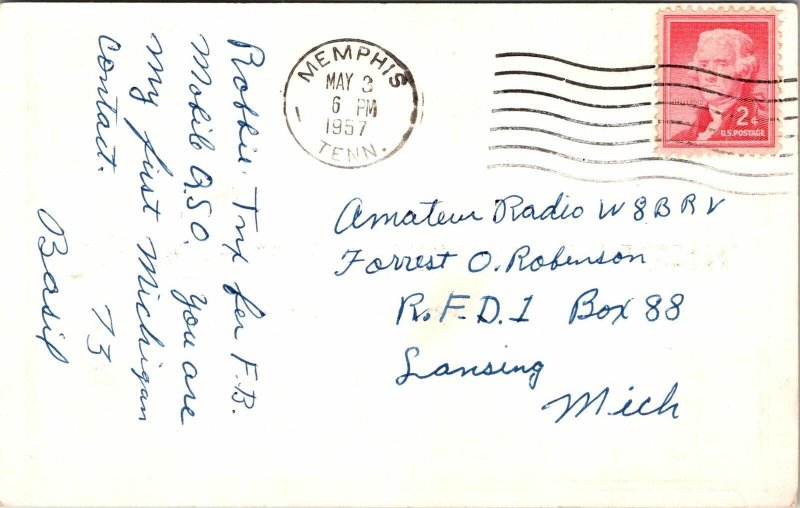 Robbie. Tnx for F.B.
Mobile QSO. You are
My first Michigan
Contact.
73
Basil
MEMPHIS
MAY 3
6 PM
1957
TENN.
2¢
U.S. POSTAGE
Amateur Radio W8BRV
Forrest O. Robinson
R.F.D.1 Box 88
Lansing
Mich